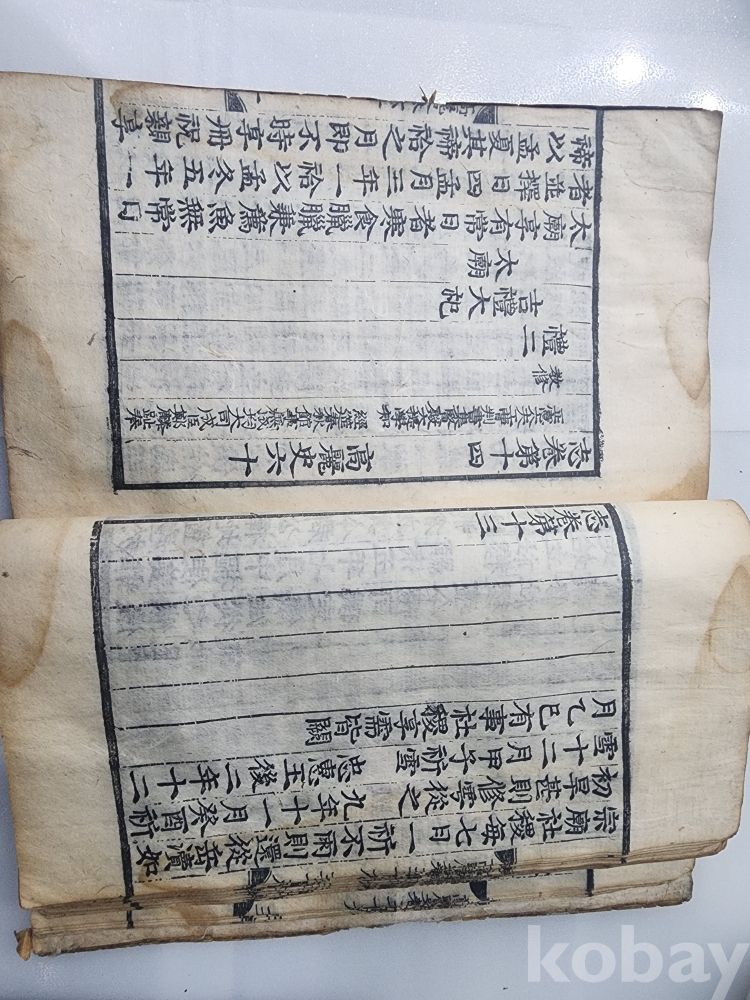 宗廟社稷每七日一祈不雨則還從岳瀆如
初旱甚則修雩從之 九年十一月癸酉祈
雪十二月甲子祈雪 忠惠王後二年十二
月乙巳有事社稷享需皆闕
志卷第十三
志卷第十四 高麗史六十
正憲大夫工曹判書集賢殿大提學知
經筵春秋館事兼成均大司成臣鄭麟趾奉
教修
禮二
吉禮大祀
太廟
太廟享有常日者寒食臘兼薦魚無常日
者並擇日四孟月三年一祫以孟冬五年一
禘以孟夏其禘祫之月即不時享冊祝親享
kobay